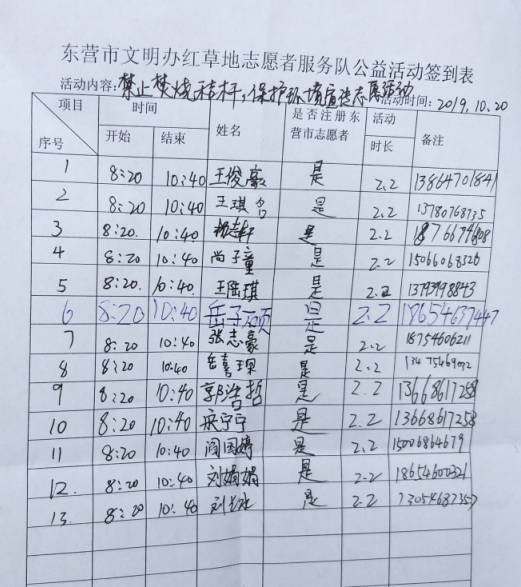 东营市文明办红草地志愿者服务队公益活动签到表
活动内容:禁止焚烧秸秆,保护环境宣传志愿活动 活动时间:2019.10.20
项目 序号 时间 开始 结束 姓名 是否注册东营市志愿者 活动时长 备注
1 8:20 10:40 王俊豪 是 2.2 13864701841
2 8:20 10:40 王琪名 是 2.2 13780768735
3 8:20. 10:40 是 2.2
4 8:20 10:40 尚子童 是 2.2 15066068326
5 8:20. 10:40. 王陆琪 是 2.2 13793998843
6 8:20 10:40 岳子硕 是 2.2 18654637447
7 8:20 10:40 张志豪 是 2.2 18754606211
8 8:20 10:40 是 2.2
9 8:20 10:40 郭浩哲 是 2.2 13668617258
10 8:20 10:40 宁宁 是 2.2 13668617258
11 8:20 10:40 阎国婷 是 2.2 15006864679
12. 8:20 10:40 刘娟娟 是 2.2 18654600321
13. 8:20 10:40 是 2.2